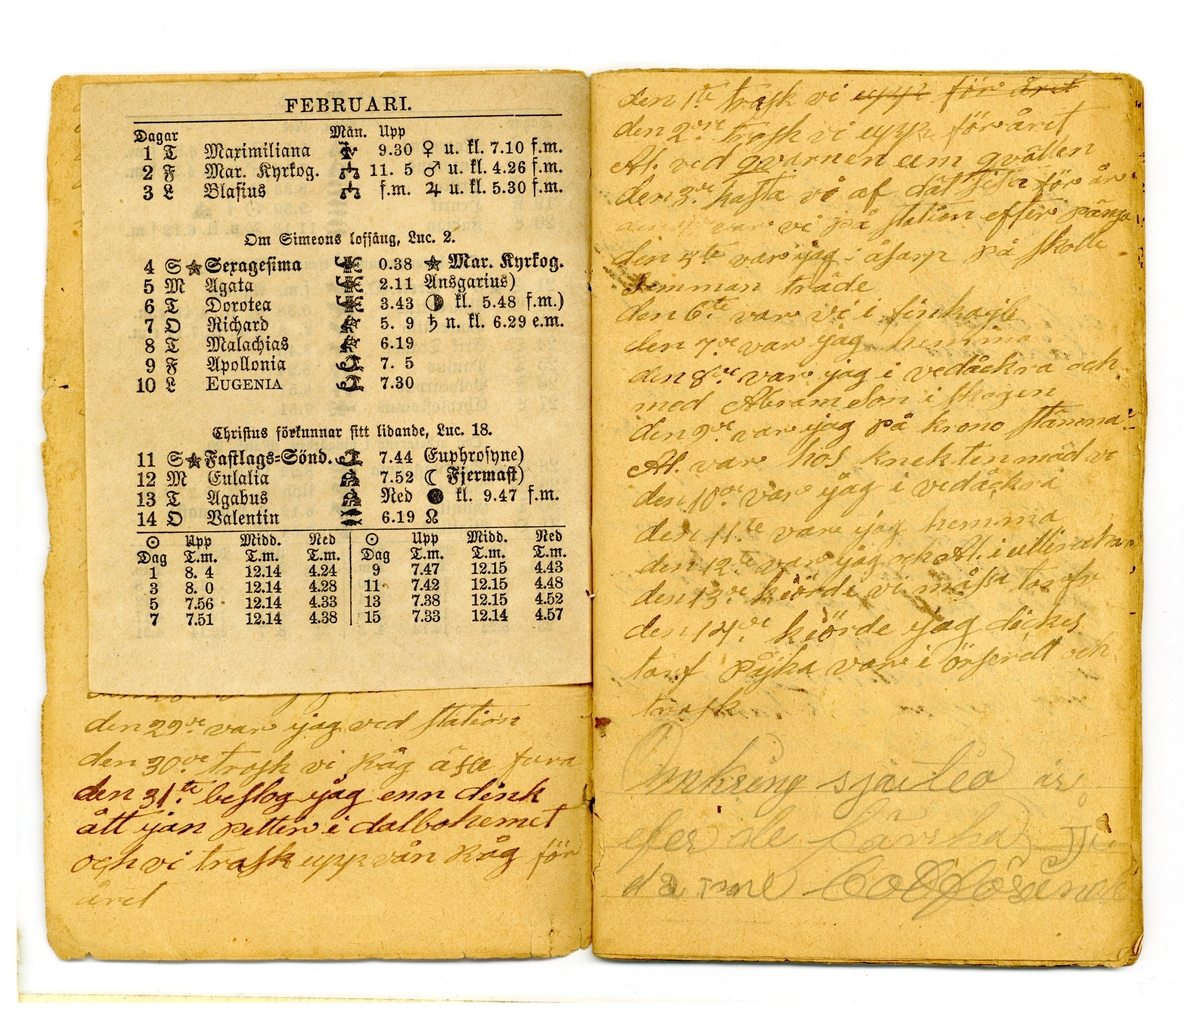 FEBRUARI.
Dagar Mån. Upp
1 T Maximiliana 9.30 ♀ u. kl. 7.10 f.m.
2 F Mar. Kyrkog. 11. 5 ♂ u. kl. 4.26 f.m.
3 L Blasius f.m. ♃ u. kl. 5.30 f.m.
Om Simeons lofsång, Luc. 2.
4 S Sexagesima 0.38 Mar. Kyrkog.
5 M Agata 2.11 Ansgarius)
6 T Dorotea 3.43 kl. 5.48 f.m.)
7 O Richard 5. 9 ♄ n. kl. 6.29 e.m.
8 T Malachias 6.19
9 F Apollonia 7. 5
10 L EUGENIA 7.30
Christus förkunnar sitt lidande, Luc. 18.
11 S Fastlags=Sönd. 7.44 Euphrosyne)
12 M Eulalia 7.52 ☾ Fjermast)
13 T Agabus Ned kl. 9.47 f.m.
14 O Valentin 6.19 ☊
☉ Upp Midd. Ned ☉ Upp Midd. Ned
Dag T.m. T.m. T.m. Dag T.m. T.m. T.m.
1 8. 4 12.14 4.24 9 7.47 12.15 4.43
3 8. 0 12.14 4.28 11 7.42 12.15 4.48
5 7.56 12.14 4.33 13 7.38 12.15 4.52
7 7.51 12.14 4.38 15 7.33 12.14 4.57
den 29de var jag ved station
den 30de trosk vi Råg fura
den 31te beslog jag enn
ått jan petter i dalbohemet
och vi trask upp vån Råg för
året
den 1te trask vi upp för året
den 2dre trask vi upp för året
At. ved qvarnen um qvällen
den 3de hasta vi af dät för år
var vi på station efter
den 5te var jag i åsarp på skolle
himman träde
den 6te var vi i
den 7de var jag hemma
den 8de var jag i vedåckra och
med Abramson i skogen
den 9de var jag på krono stämma
At. var hos knekten mäd ve
den 10de var jag i vedåckra
den 11te var jag hemma
den 12te var jag och At. i
den 13de kiörde vi måsa torf
den 14de kiörde jag
torf påjka var i och
trask
Omkring
efer de